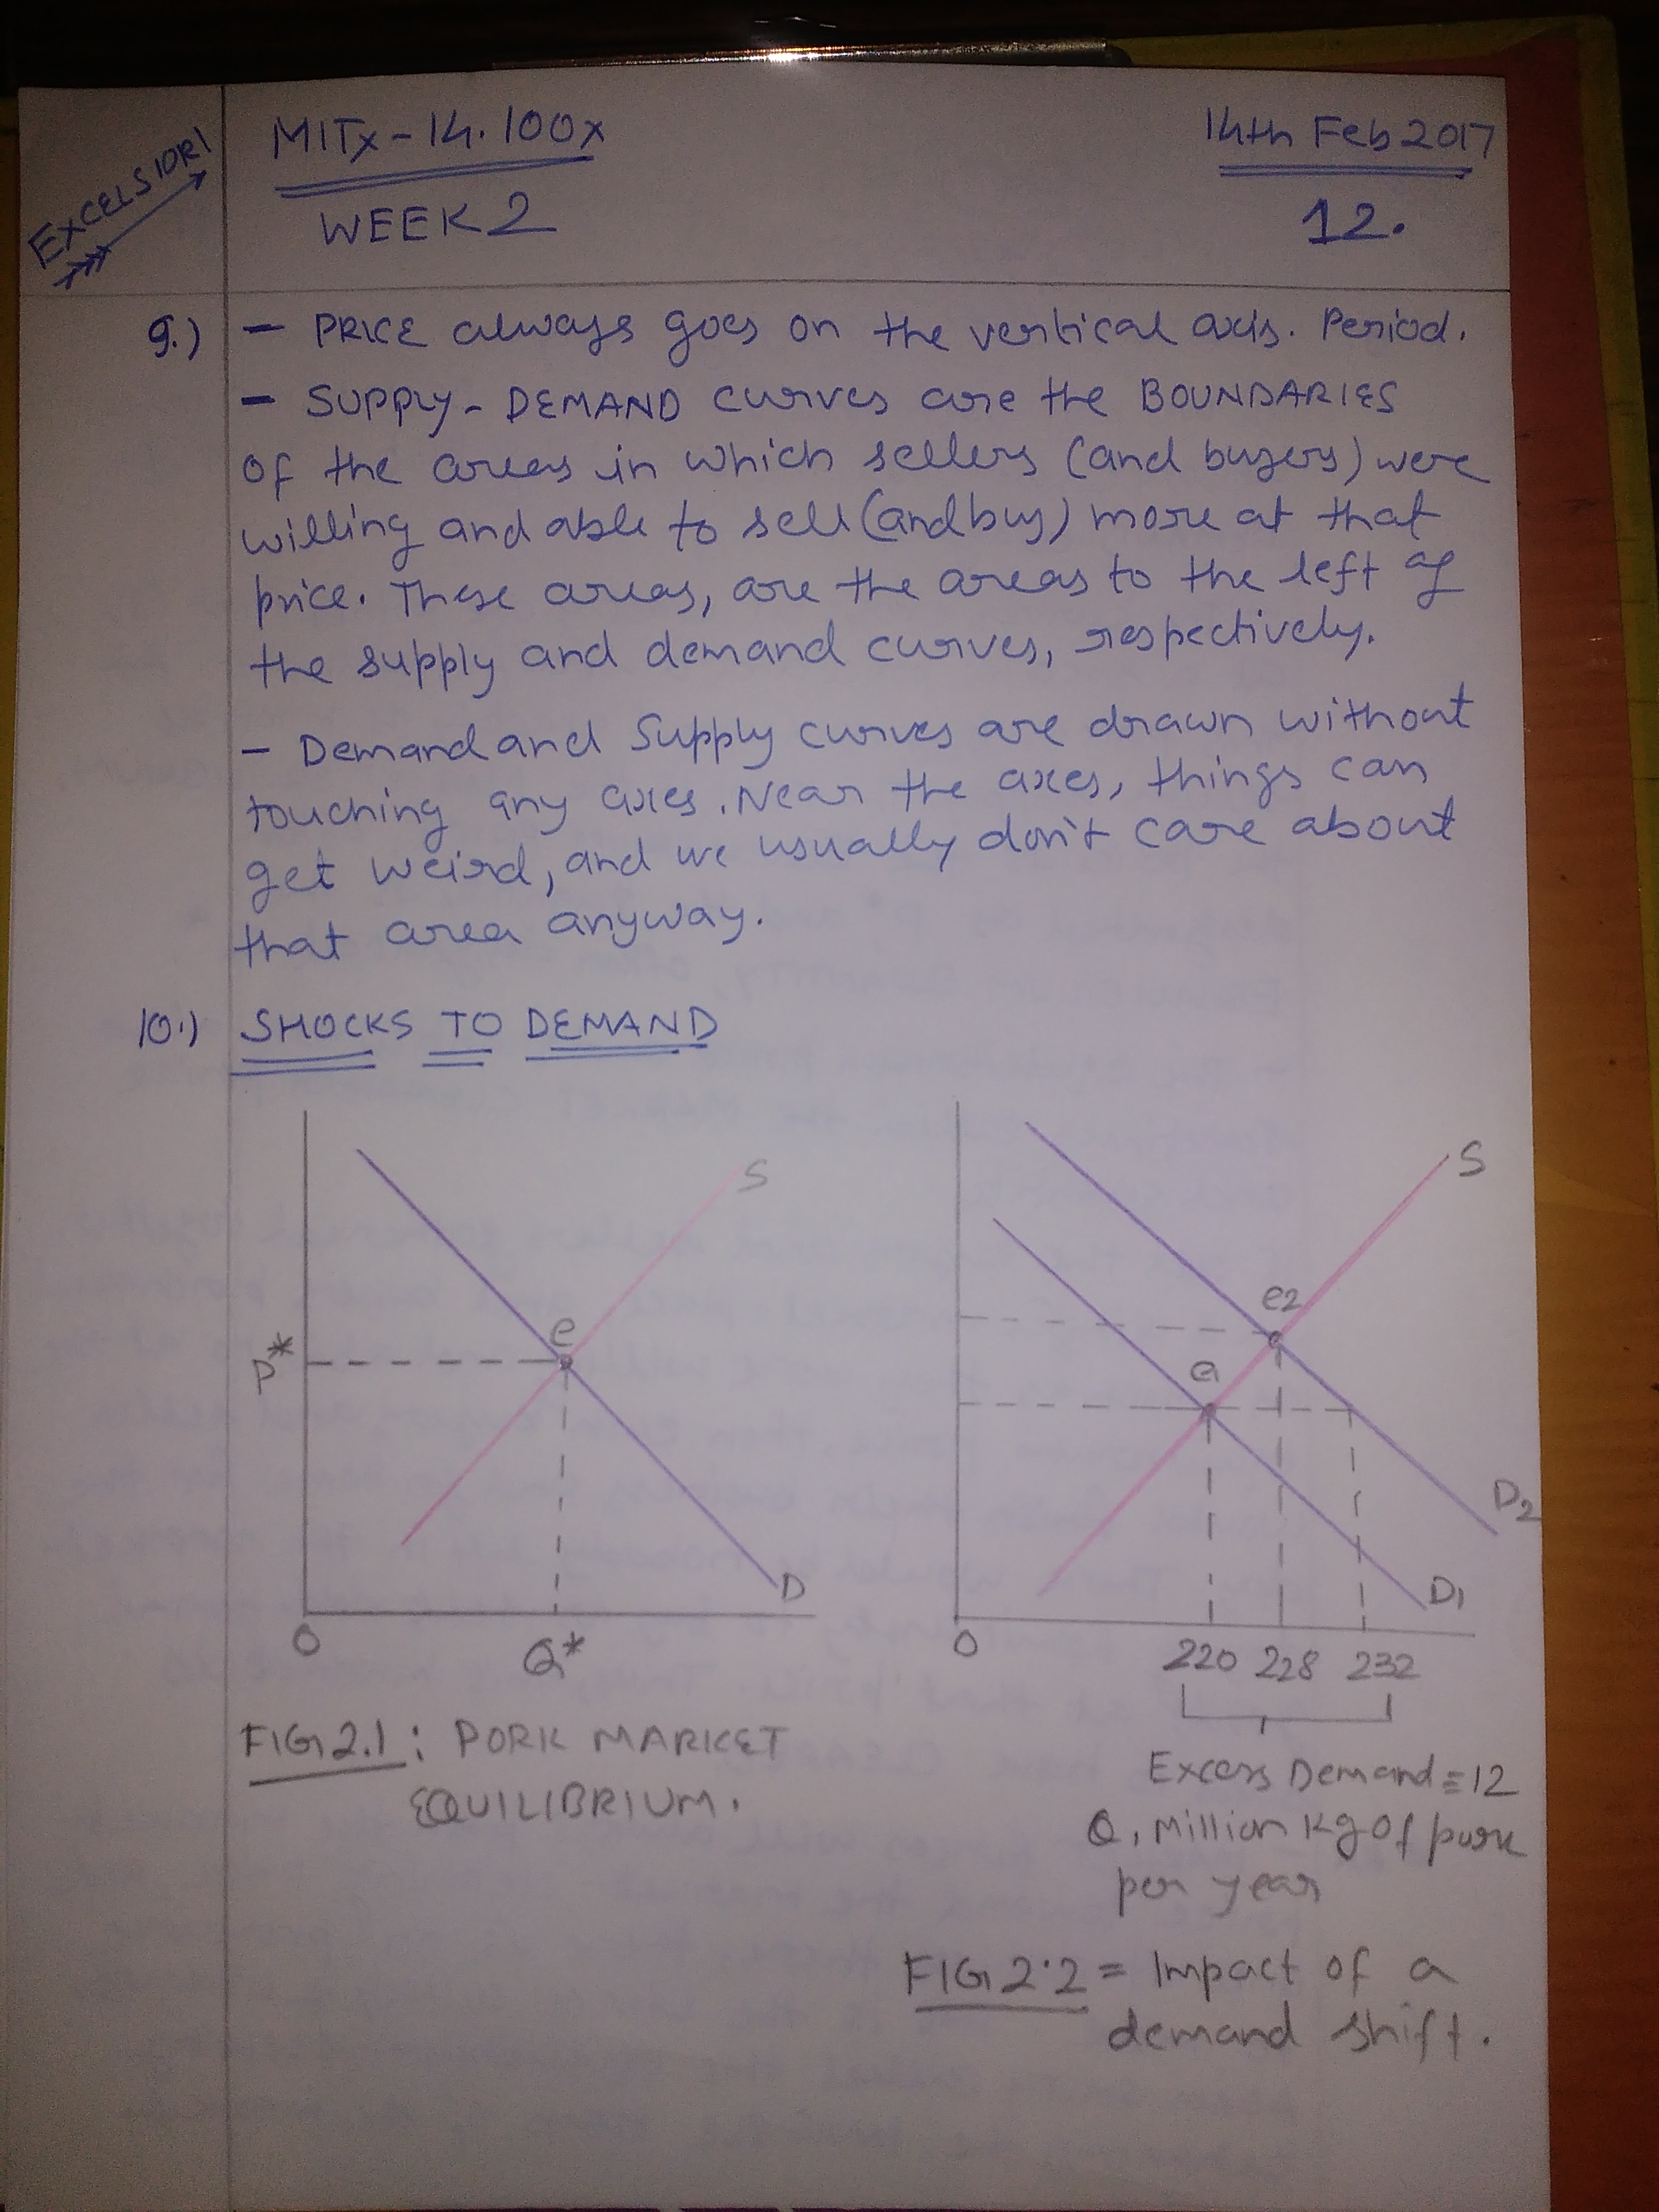 EXCELSIOR!
MITx-14.100x
14th Feb 2017
WEEK 2
12.
9.) - PRICE always goes on the vertical axis. Period.
- SUPPLY-DEMAND curves are the BOUNDARIES
of the areas in which sellers (and buyers) were
willing and able to sell (and buy) more at that
price. These areas, are the areas to the left of
the supply and demand curves, respectively.
- Demand and Supply curves are drawn without
touching any axes. Near the axes, things can
get weird, and we usually don't care about
that area anyway.
10.) SHOCKS TO DEMAND
S
e
P*
D
O
Q*
S
e2
e1
D2
D1
O
220 228 232
FIG 2.1: PORK MARKET
EQUILIBRIUM.
Excess Demand = 12
Q, Million Kg of pork
per year
FIG 2.2 = Impact of a
demand shift.